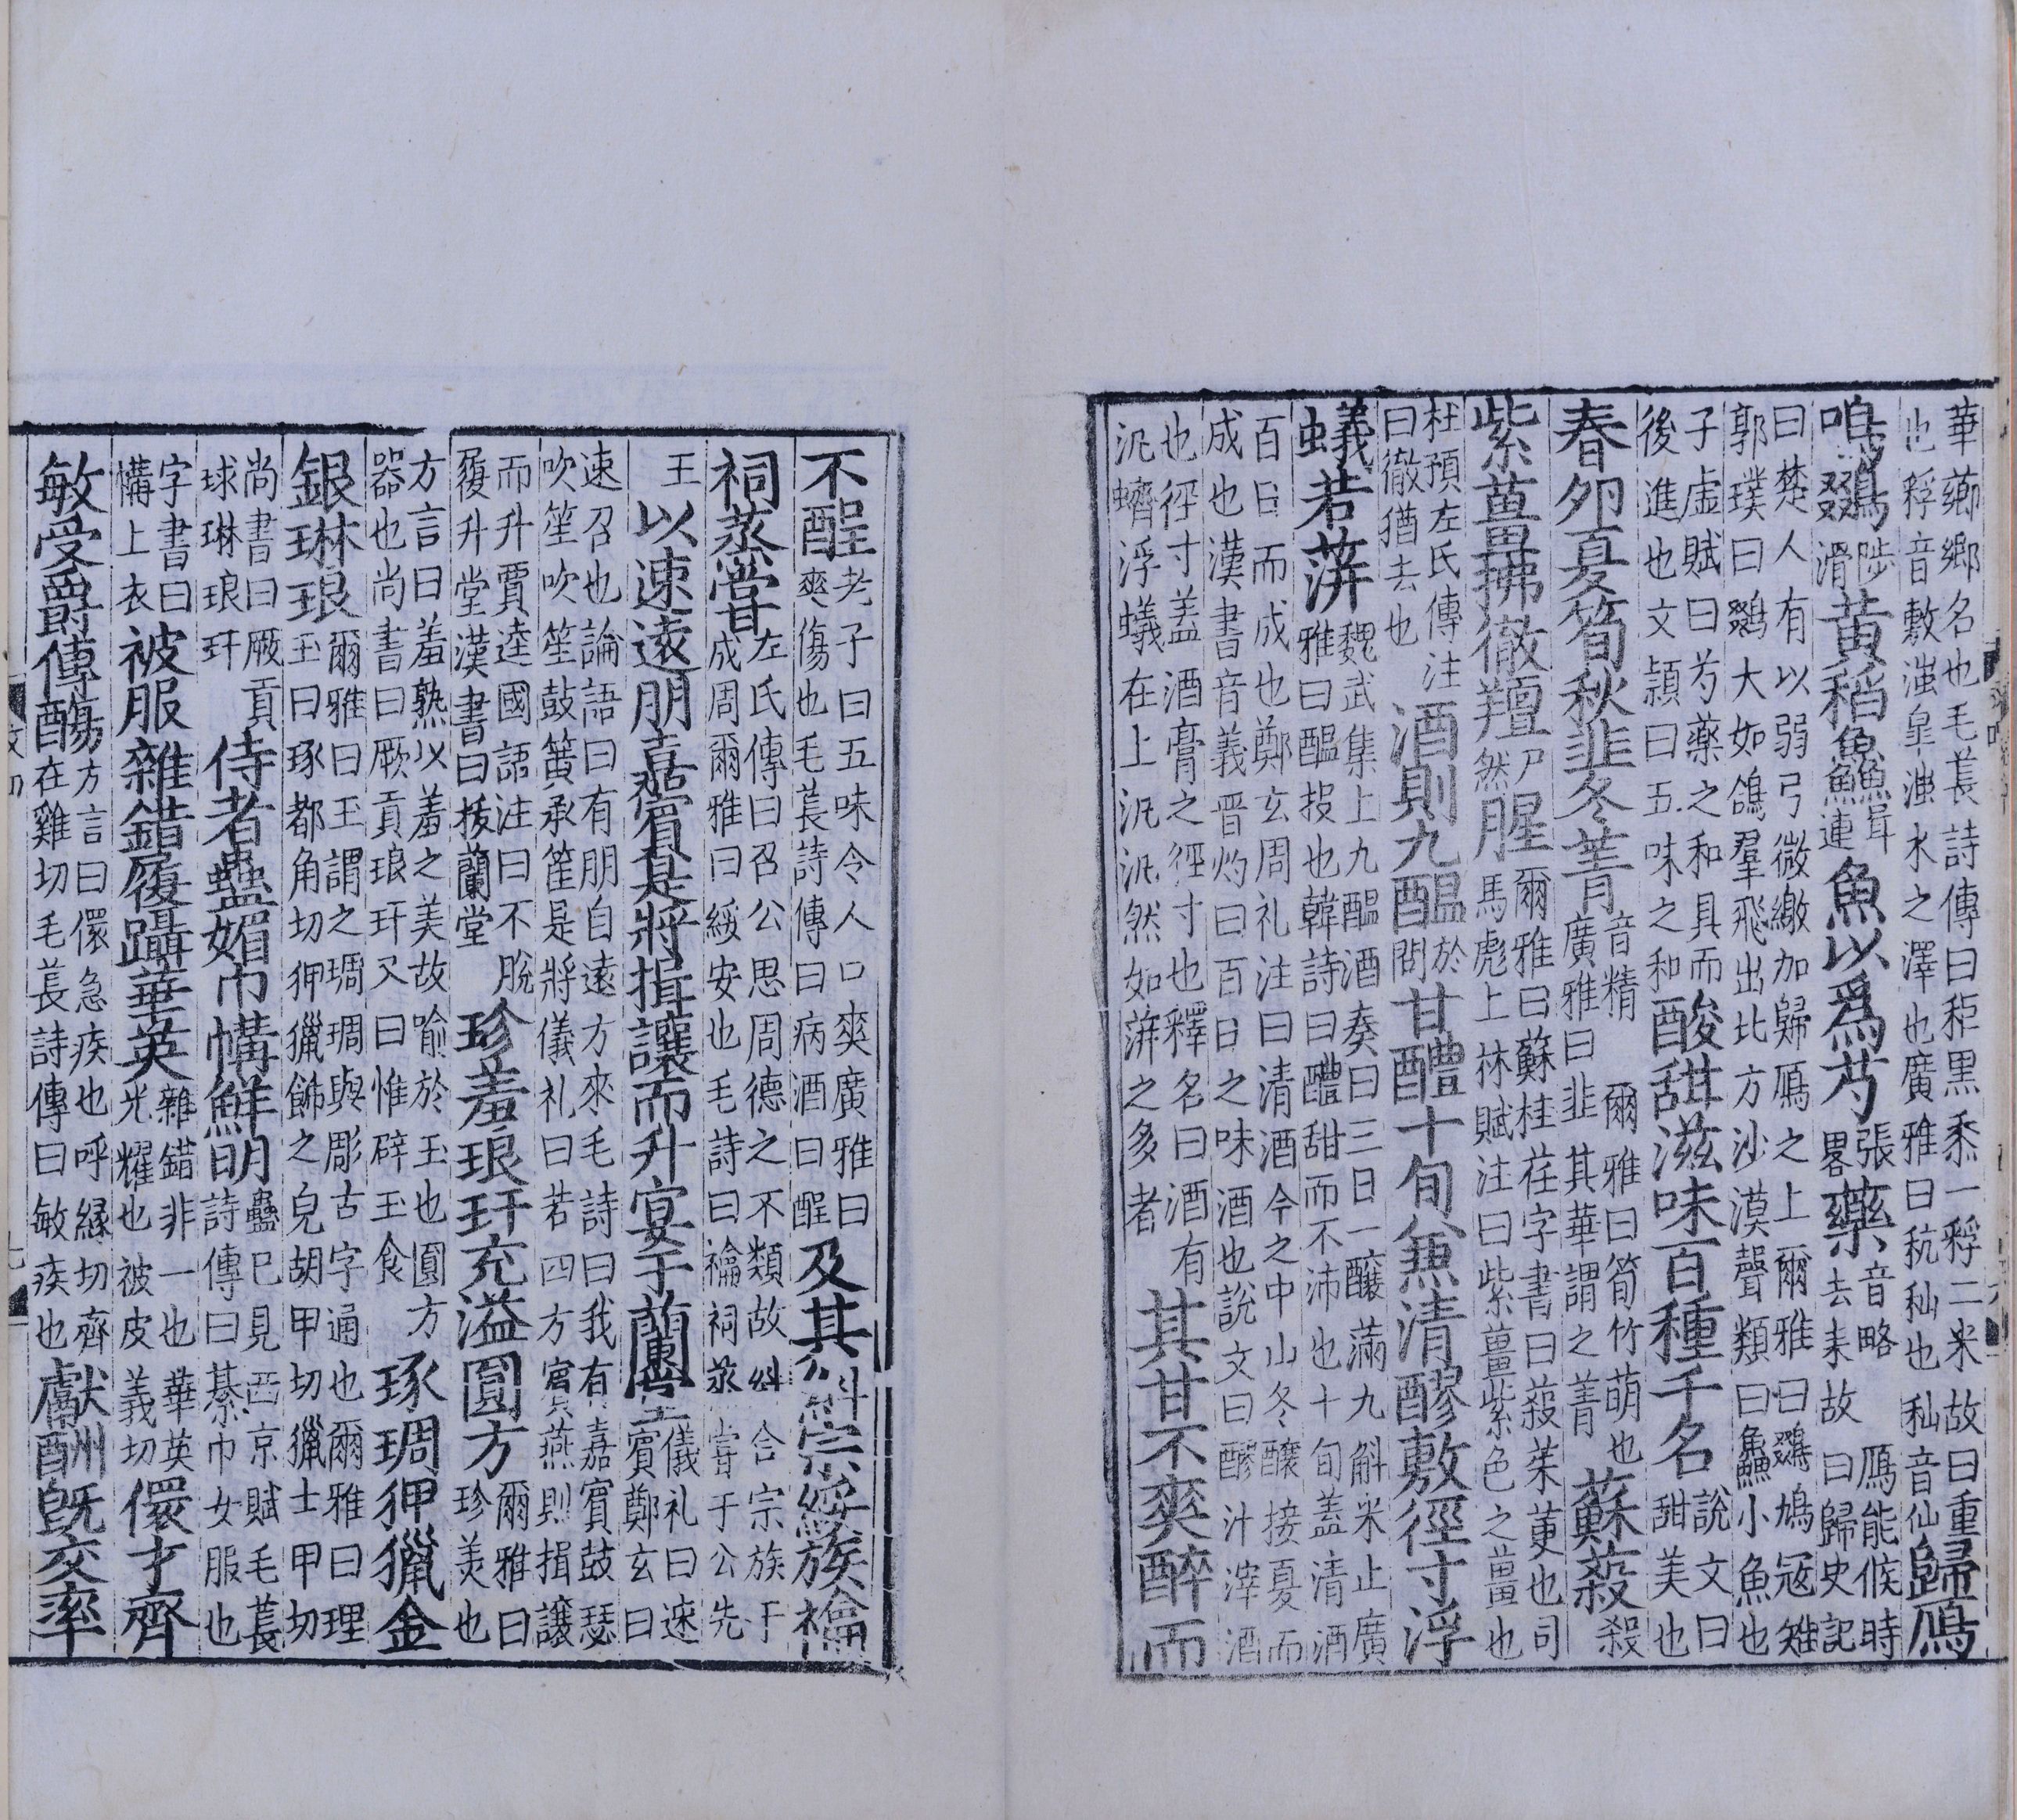 華薌鄉名也毛萇詩傳曰秬黒黍一稃二米故曰重也稃音敷滍皐滍水之澤也廣雅曰秔秈也秈音仙歸鴈
鳴鵽陟滑黃稻鱻胥連魚以爲芍張畧藥音略鴈能候時去来故曰歸史記
曰楚人有以弱弓微繳加歸鴈之上爾雅曰鵽鳩冦雉郭璞曰鵽大如鴿羣飛出北方沙漠聲類曰鱻小魚也
子虛賦曰芍藥之和具而後進也文頴曰五味之和酸甜滋味百種千名說文曰甜美也
春夘夏筍秋韭冬菁音精爾雅曰筍竹萌也廣雅曰韭其華謂之菁蘇蔱殺
紫薑拂徹羶尸然腥爾雅曰蘇桂荏字書曰蔱茱萸也司馬彪上林賦注曰紫薑紫色之薑也
杜預左氏傳注曰徹猶去也酒則九醖於問甘醴十旬兼清醪敷徑寸浮
蟻若蓱魏武集上九醖酒奏曰三日一釀滿九斛米止廣雅曰醖投也韓詩曰醴甜而不沛也十旬盖清酒
百日而成也鄭玄周礼注曰清酒今之中山冬釀接夏而成也漢書音義晋灼曰百日之味酒也說文曰醪汁滓酒
也徑寸盖酒膏之徑寸也釋名曰酒有汎蠐浮蟻在上汎汎然如蓱之多者其甘不爽醉而
不酲老子曰五味令人口爽廣雅曰爽傷也毛萇詩傳曰病酒曰酲及其糾宗綏族禴
祠蒸甞左氏傳曰召公思周德之不類故糾合宗族于成周爾雅曰綏安也毛詩曰禴祠蒸甞于公先
王以速遠朋嘉賔是將揖讓而升宴于蘭堂儀礼曰速賔鄭玄曰
速召也論語曰有朋自遠方來毛詩曰我有嘉賔鼓瑟吹笙吹笙鼓簧承筐是將儀礼曰若四方賔燕則揖讓
而升賈逵國語注曰不脫屨升堂漢書曰披蘭堂珍羞琅玕充溢圓方爾雅曰珍美也
方言曰羞熟以羞之美故喻於玉也圓方器也尚書曰厥貢琅玕又曰惟辟玉食琢琱狎獵金
銀琳琅爾雅曰玉謂之琱琱與彫古字通也爾雅曰理玉曰琢都角切狎獵飾之皃胡甲切獵士甲切
尚書曰厥貢球琳琅玕侍者蠱媚巾㡚鮮明蠱已見西京賦毛萇詩傳曰綦巾女服也
字書曰㡚上衣被服雜錯履躡華英雜錯非一也華英光耀也被皮義切儇才齊
敏受爵傳觴方言曰儇急疾也呼縁切齊在雞切毛萇詩傳曰敏疾也獻酬旣交率